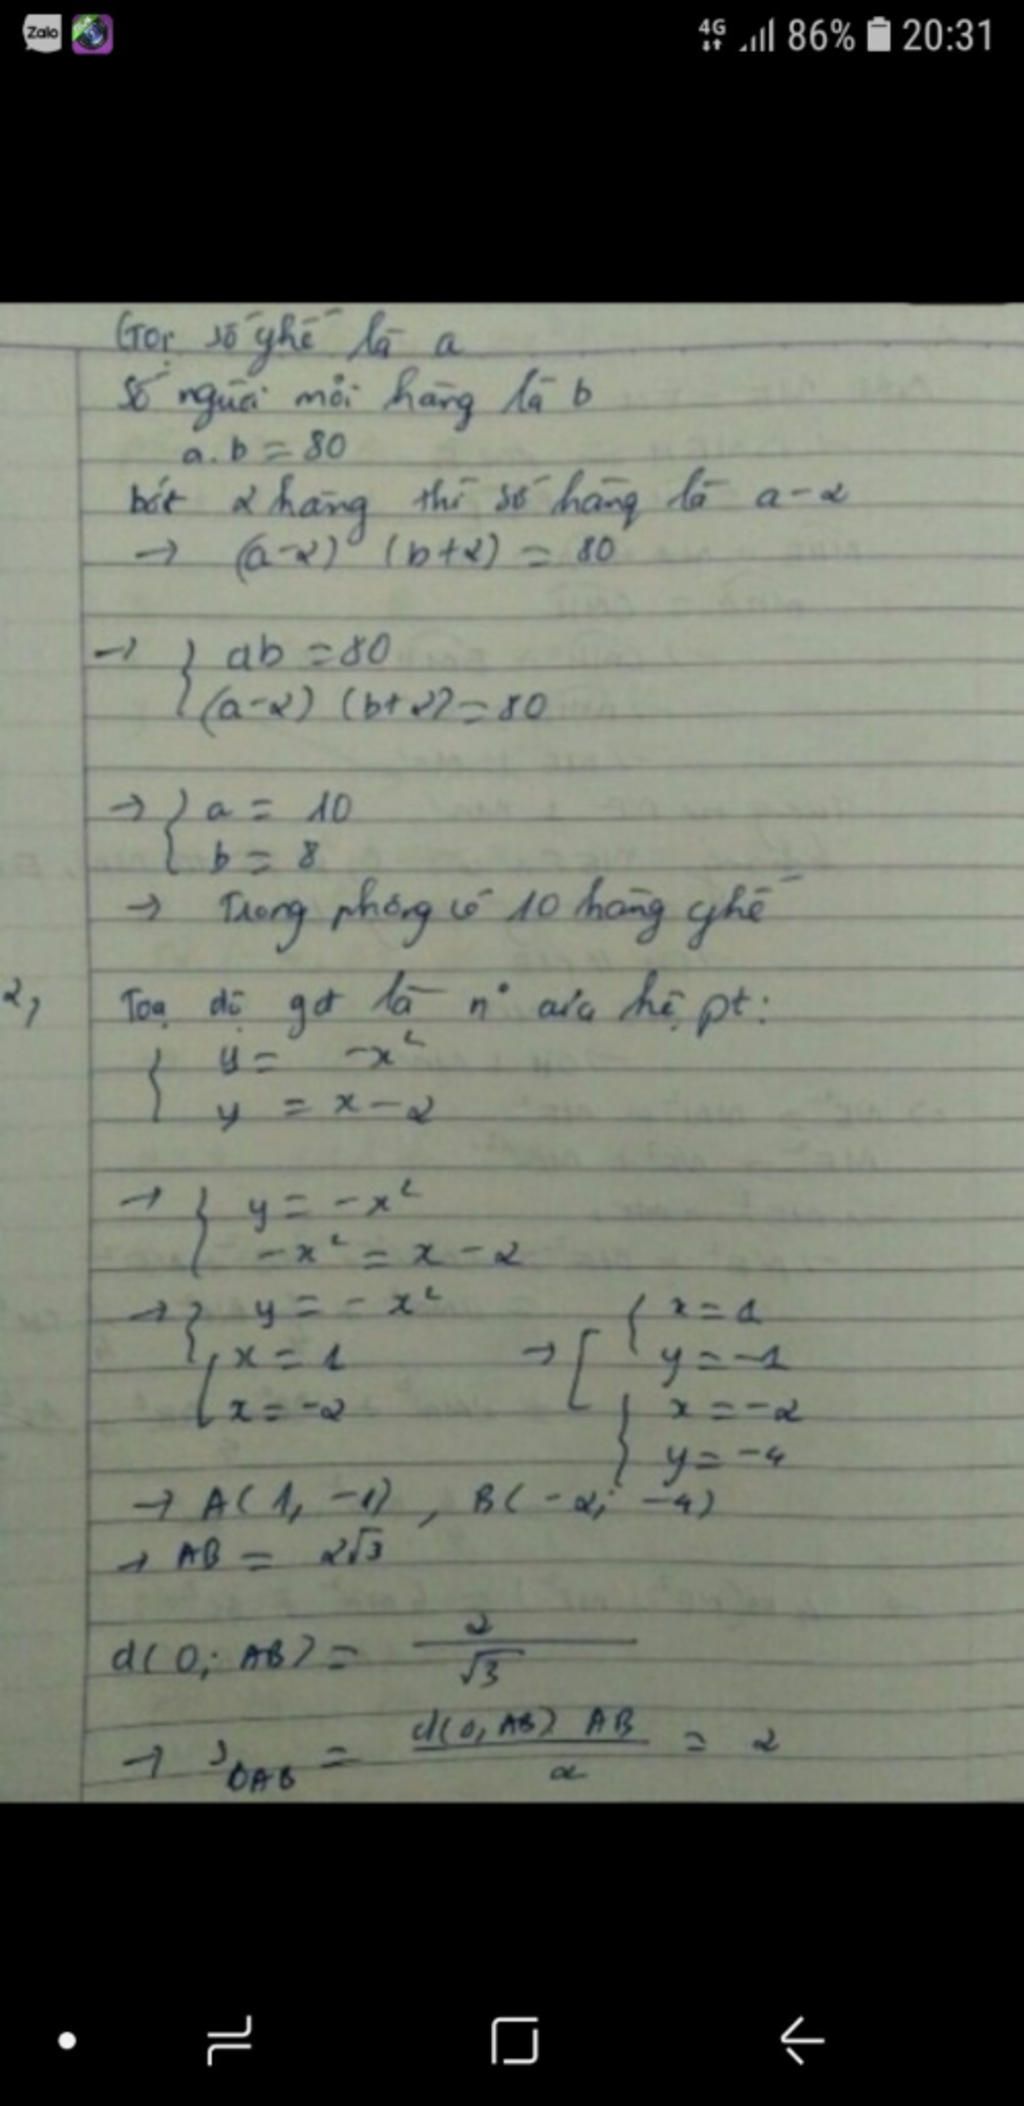 Zalo 4G 86% 20:31
Gọi số ghế là a
Số người mỗi hàng là b
a.b = 80
bớt 2 hàng thì số hàng là a-2
→ (a-2) (b+2) = 80
→ { ab = 80
(a-2) (b+2) = 80
→ { a = 10
b = 8
→ Trong phòng có 10 hàng ghế
2, Toạ độ gđ là n° của hệ pt:
{ y = -x²
y = x-2
→ { y = -x²
-x² = x-2
→ { y = -x²
[ x = 1
x = -2
→ [ { x = 1
y = -1
{ x = -2
y = -4
→ A(1, -1) , B(-2; -4)
→ AB = 2√3
d(O; AB) = 2/√3
→ S_OAB = d(O, AB) AB / 2 = 2